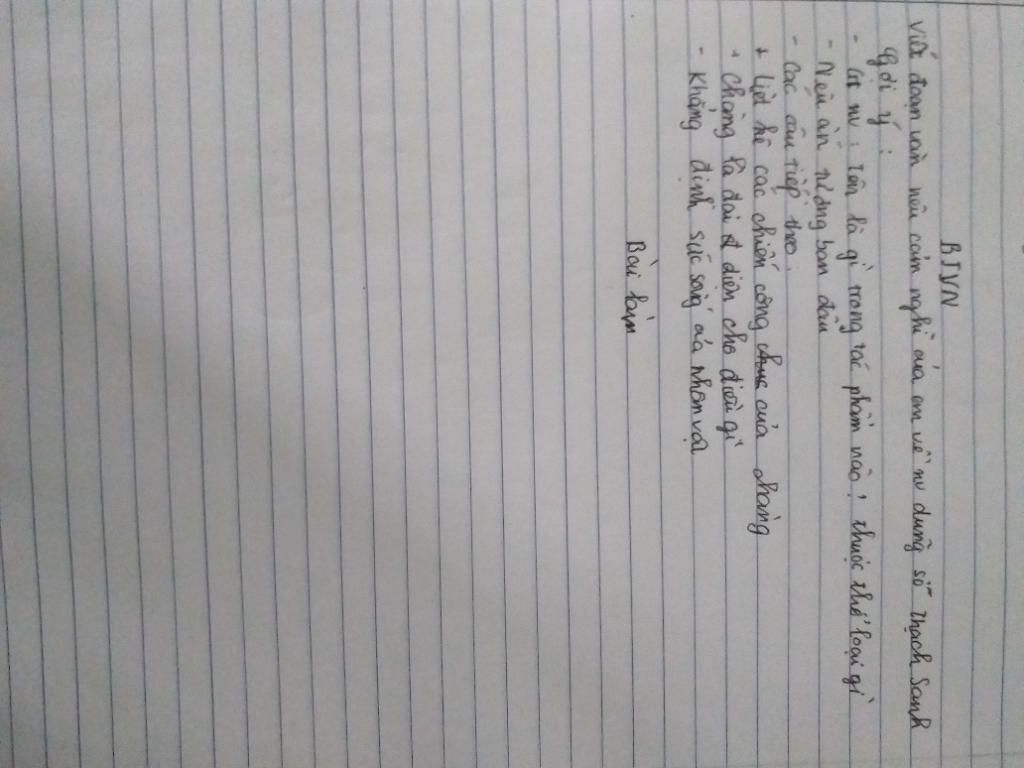 BTVN
Viết đoạn văn nêu cảm nghĩ của em về nv dũng sĩ Thạch Sanh
Gợi ý :
- GT nv : tên là gì trong tác phẩm nào ? thuộc thể loại gì
- Nêu ấn tượng ban đầu
- Các câu tiếp theo :
+ Liệt kê các chiến công của chàng
+ Chàng là đại diện cho điều gì
- Khẳng định sức sống của nhân vật
Bài làm